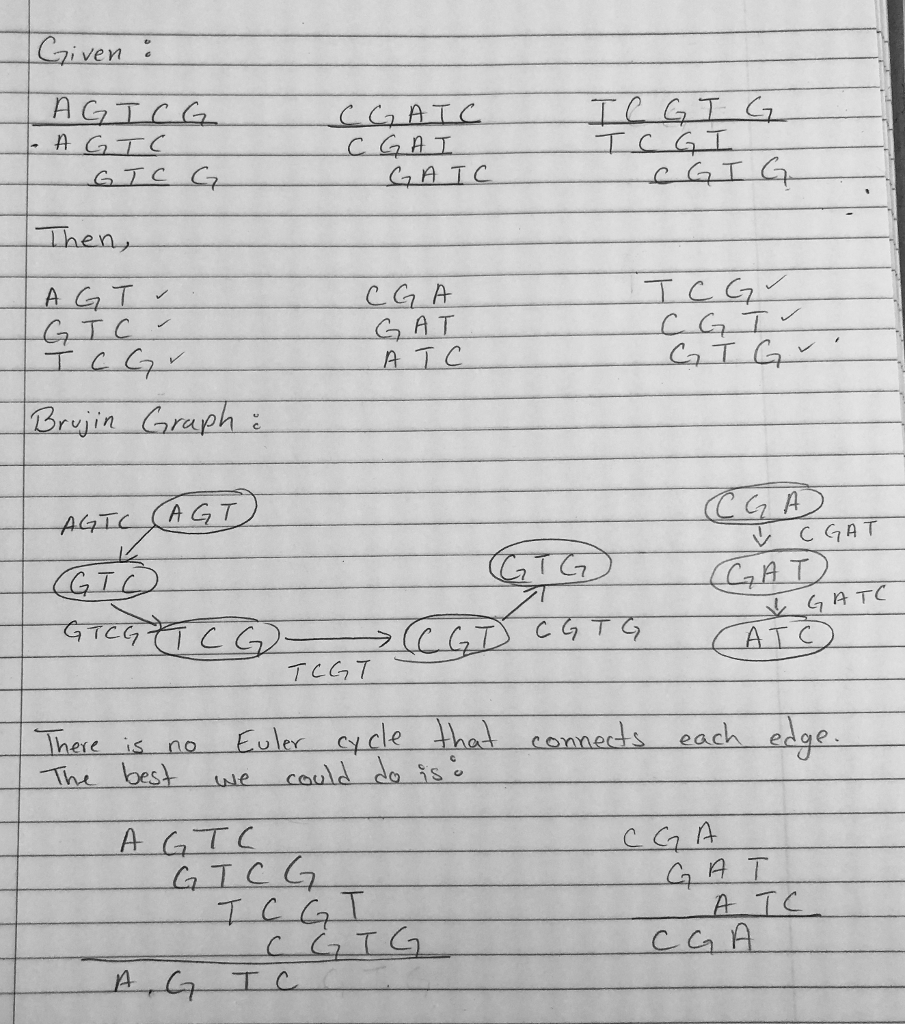 Given :
AGTCG CGATC TCGTG
AGTC CGAT TCGT
GTCG GATC CGTG
Then,
AGT ✓ CGA TCG ✓
GTC ✓ GAT CGT ✓
TCG ✓ ATC GTG ✓
Brujin Graph :
AGTC AGT CGA
CGAT
GTC GTG GAT
GATC
GTCG TCG CGT CGTG ATC
TCGT
There is no Euler cycle that connects each edge.
The best we could do is :
AGTC CGA
GTCG GAT
TCGT ATC
CGTG CGA
A.G TC